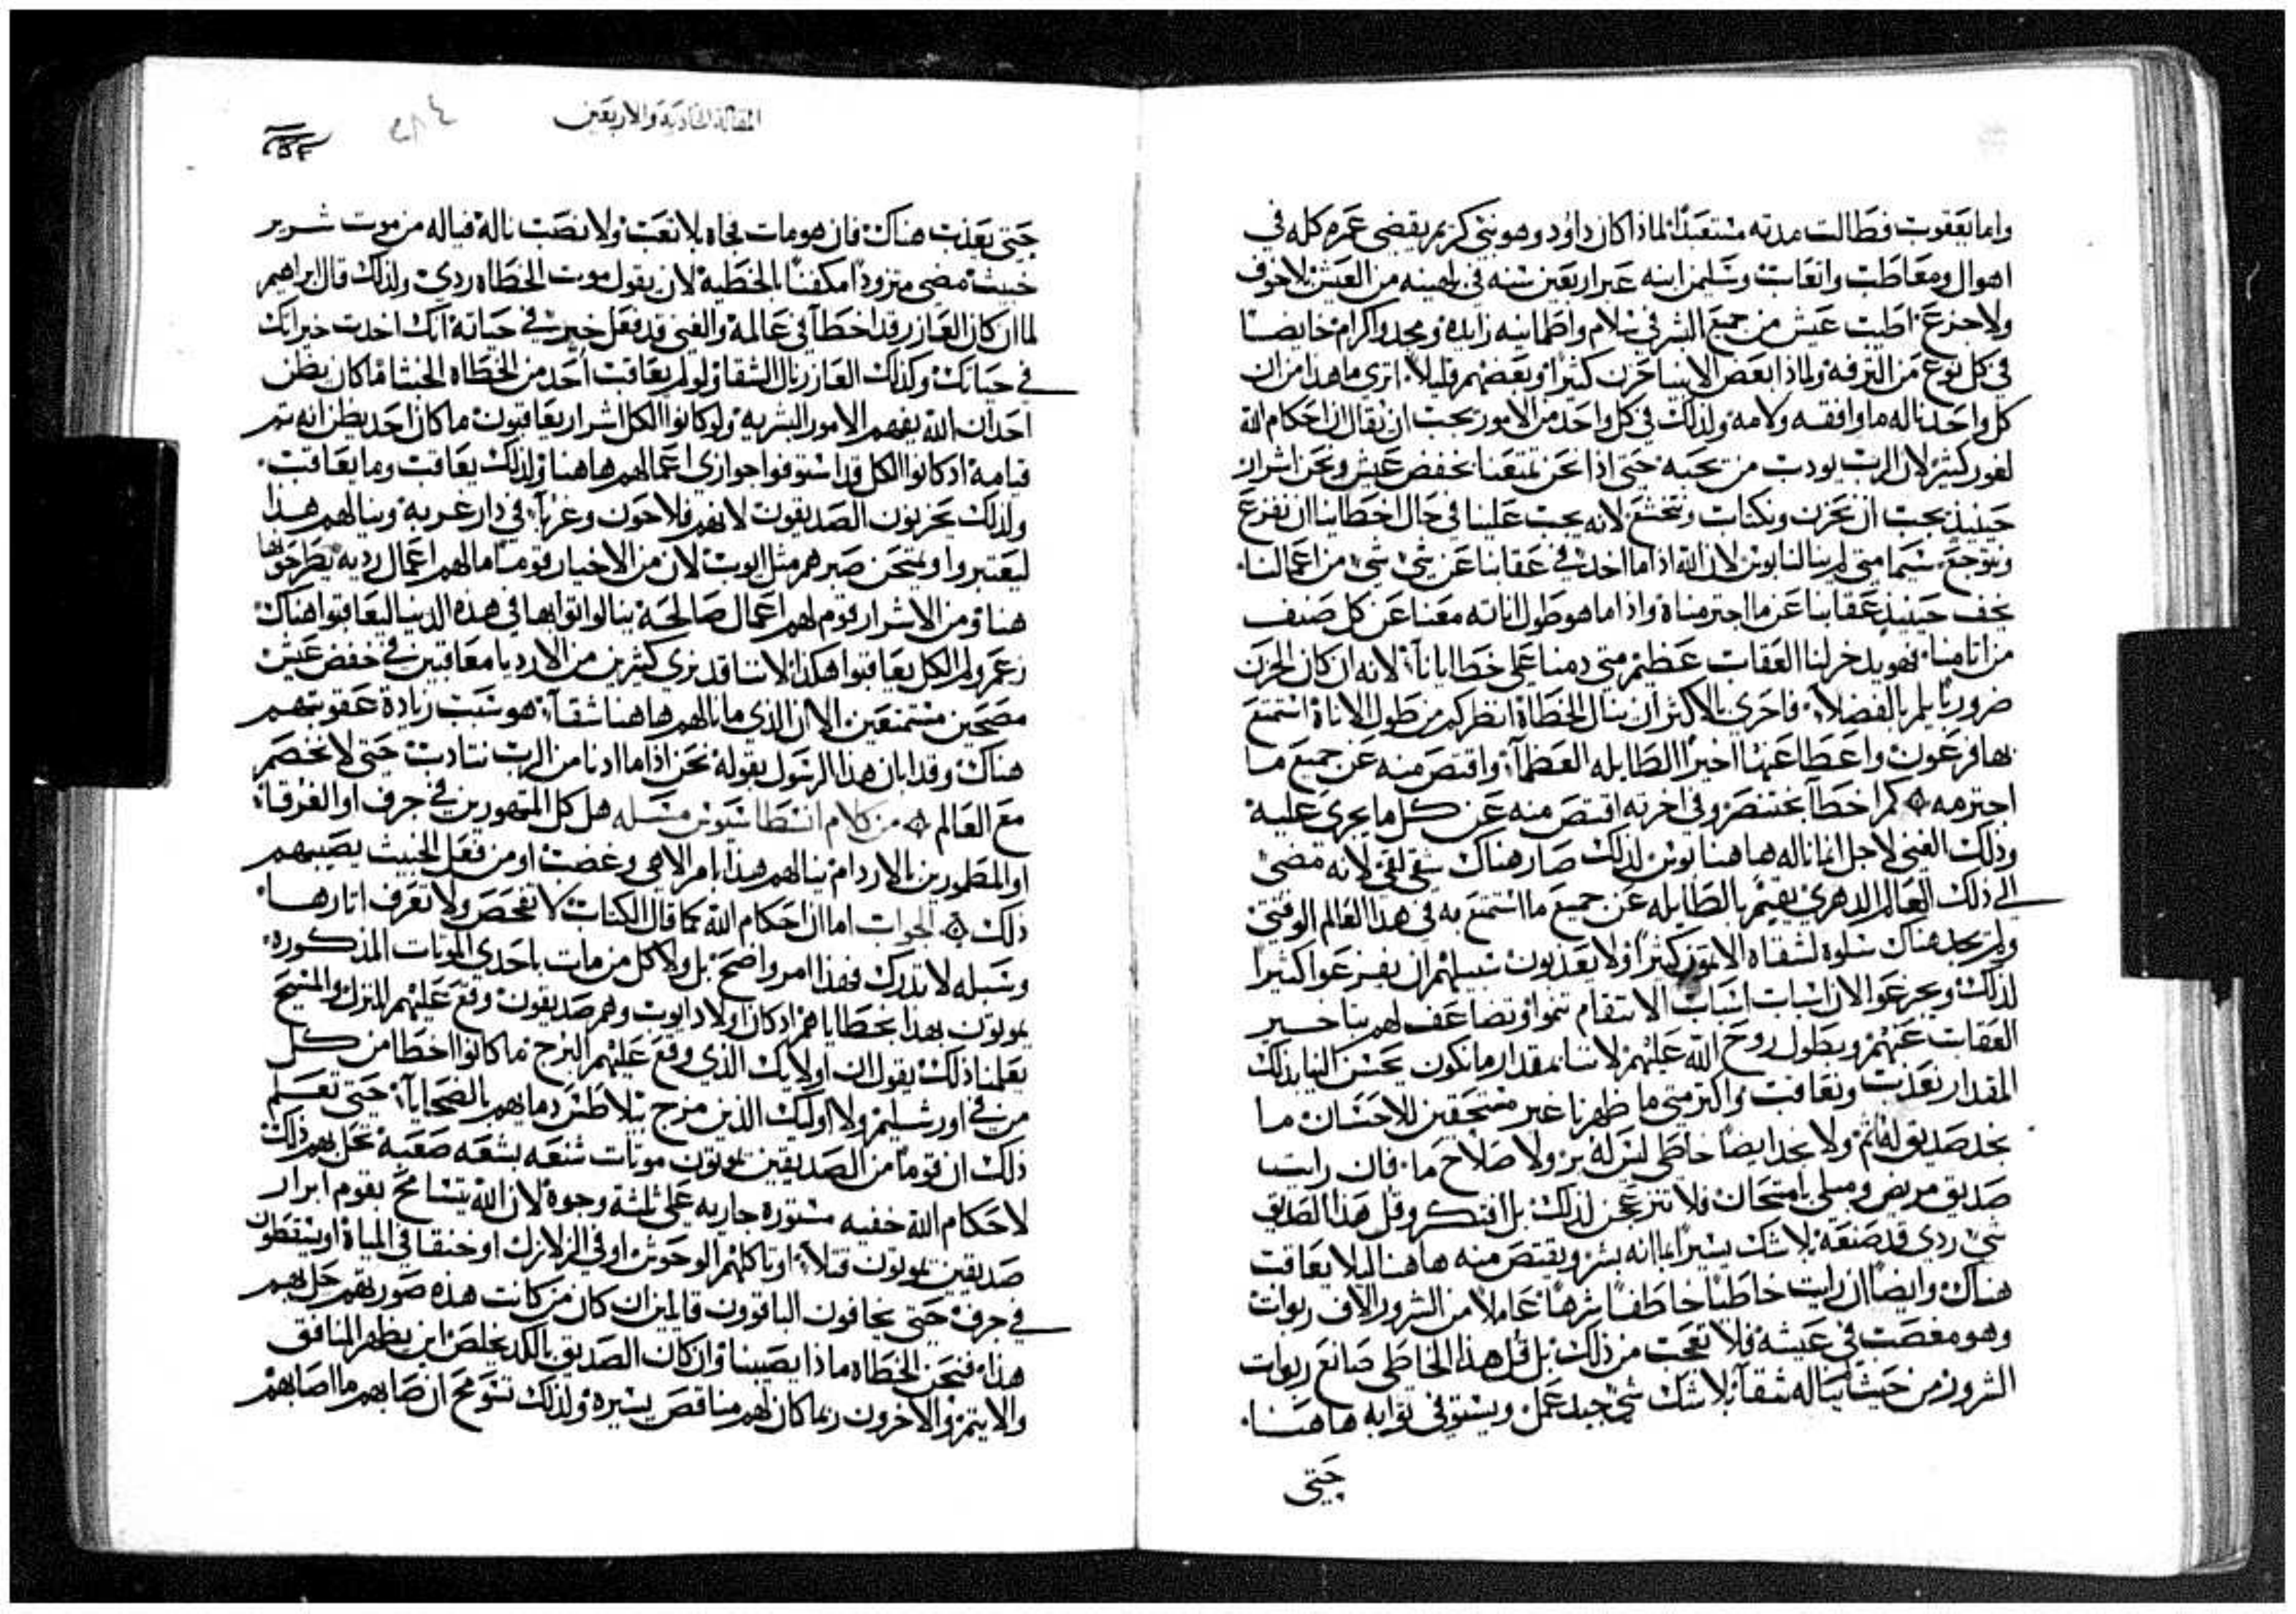 واما يعقوب فطالت مدته مستعبدًا لماذا كان داوود وهو نبي كريم يقضي عمره كله في
اهوال ومعاطب واتعاب وسليمن ابنه عبر اربعين سنه في لهينه من العيش لا خوف
ولا جزع اطيب عيش من جميع البشر في سلام واطمانيه زايده ومجد واكرام خايضًا
في كل نوع من الترفه ولماذا بعض الانبيا حزن كثيرًا وبعضهم قليلاً. اتري ما هدا من ان
كل واحد ناله ما وافقه ولامه ولذلك في كل واحد من الامور يجب ان يقال ان احكام الله
لغور كثير لان الرب يودب من يحبه حتي اذا نحن تمتعنا بخفض عيش ونحن اشرار
حينيذ يجب ان نحزن ونكتاب ونتخشع لانه يجب علينا في حال اخطاينا ان نفزع
ونتوجع سيما متي لم ينالنا بوس لان الله اذا ما اخد في عقابنا عن شي شي من اعمالنا.
يخف حينيذ عقابنا عن ما اجترمناه واذا ما هو طول اناته معنا عن كل صنف
من اثامنا. فهو يدخر لنا العقاب عظيم متي دمنا علي خطايانا لانه ان كان الحزن
ضروريًا يلم بالفضلاً. فاحري بالاكثر ان ينال الخطاة انظر كم من طول الاناة استمتع
بها فرعون واعطا عنها اخيرًا الطايله العظمآ واقتص منه عن جميع ما
اجترمه كم اخطآ بختنصر وفي اخرته اقتص منه عن كل ما يجري عليه
وذلك الغني لاجل انما ناله هاهنا بوس لذلك صار هناك شقي لقي لانه مضي
الي ذلك العالم الدهري يقيم بالطايله عن جميع ما استمتع به في هدا العالم الوقتي
ولم يجد هناك سلوه لشقاه الاتمون كثيرًا ولا يعذبون سبيلهم ان يفزعوا كثيرًا
لذلك ويجزعوا لان اسباب اسباب الانتقام تنموا وتضاعف لهم بتاخير
العقاب عنهم وبطول روح الله عليهم لاننا بمقدار ما نكون يحسن الينا بذلك
المقدار نعذب ونعاقب واكتر متي ما ظهرنا غير مستحقين للاحسان ما
نجد صديق له اثم ولا نجد ايضًا خاطي ليس له بر ولا صلاح ما. فان رايت
صديق مريض ومبلي بامتحان فلا تنزعجن لذلك بل افتكر وقل هذا الصديق
شي ردي قد صنعه بلا شك يسيرًا بما انه بشر ويقتص منه هاهنا ليلا يعاقب
هناك وايضًا ان رايت خاطيًا خاطفًا شرهًا عاملاً من الشرور الاف ربوات
وهو مغصب في عيشه فلا تعجب من ذلك بل قل هذا الخاطي صانع ربوات
الشرور من حيث يناله شقآ بلا شك شي جيد عمل ويستوفي ثوابه هاهنا.
حتي
المقاله الحاديه والاربعين
٢٨٤
حتي يعذب هناك فان هو مات فجاه بلا تعب ولا نصب ناله فياله من موت شرير
خبيث مضي متزودًا مكفنًا بالخطيه لان يقول موت الخطاه ردي ولذلك قال ابراهيم
لما ان كان العازر قد اخطآ في عالمه والغني قد فعل خير في حياته انك اخدت خيراتك
في حياتك وكذلك العازر نال الشقا ولو لم يعاقب احد من الخطاه الخبثا ما كان يظن
احد ان الله يفهم الامور البشريه ولو كانوا الكل اشرار يعاقبون ما كان احد يظن انه تم
قيامه اد كانوا الكل قد استوفوا جوازي اعمالهم هاهنا ولذلك يعاقب وما يعاقب.
ولذلك يحزنون الصديقون لانهم فلاحون وغربآ في دار غربه وينالهم هذا
ليعتبروا ويمتحن صبرهم مثل ايوب لان من الاخيار قومًا ما لهم اعمال رديه يطرحونها
هنا ومن الاشرار قوم لهم اعمال صالحه ينالوا ثوابها في هذه الدنيا ليعاقبوا هناك
زعم ولم الكل يعاقبوا هكذا لاننا قد نري كثيرين من الارديا معافين في خفض عيش
مصحين مستمتعين. الا ان الذي ما نالهم هاهنا شقآ هو سبب زيادة عقوبتهم
هناك وقد ابان هذا الرسول بقوله نحن اذا ما ادنا من الرب نتادب حتي لا نخصم
مع العالم من كلام انسطاسيوس مسله هل كل المتهورين في جرف او الغرقا
او المطمورين بالاردام ينالهم هذا بامر الاهي وغضب او من فعل الخبيث يصيبهم
ذلك الجواب اما ان احكام الله كما قال الكتاب لا تفحص ولا تعرف اثارها.
وسبله لا تدرك فهذا امر واضح بل ولا كل من مات باحدي الموتات المذكوره
يموتون بهذا بخطاياهم اد كان اولاد ايوب وهم صديقون وقع عليهم المنزل والمسيح
يعلمنا ذلك يقول ان اولايك الذي وقع عليهم البرج ما كانوا اخطا من كل
من في اورشليم ولا اوليك الذين مزج بيلاطس دماهم بالضحايا حتي نعلم
ذلك ان قومًا من الصديقين يموتون موتات شنعه بشعه صعبه تحل بهم ذلك
لاحكام الله خفيه مستوره جاريه علي ثلثة وجوه لان الله يتسامح بقوم ابرار
صديقين يموتون قتلاً او تاكلهم الوحوش او في الزلازل او خنقا في المياه او يسقطون
في جرف حتي يخافون الباقون قايلين ان كان من كانت هذه صورتهم حل بهم
هذا. فنحن الخطاه ماذا يصيبنا وان كان الصديق بالكد يخلص اين يظهر المنافق
والاثيم والاخرون ربما كان لهم مناقص يسيره ولذلك تسومح ان صابهم ما اصابهم